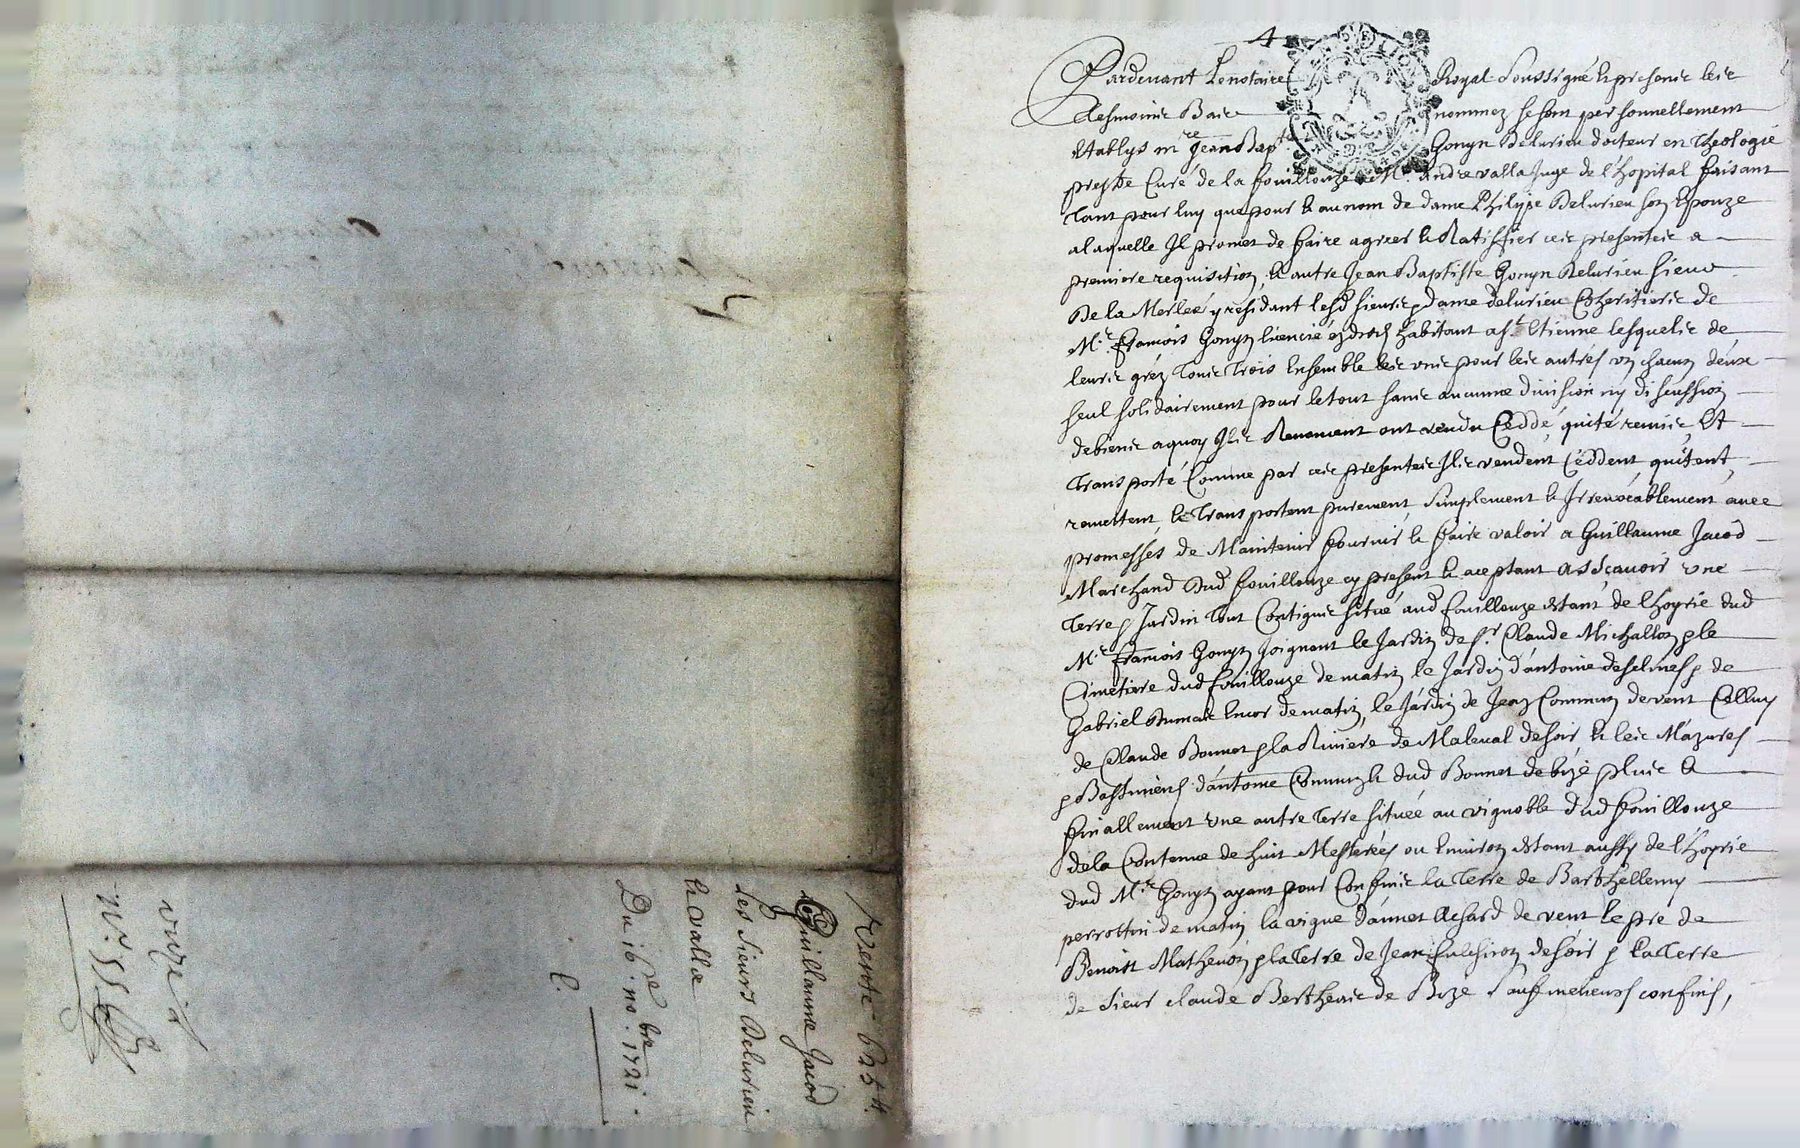 Vente 625 ₶
Guillaume Jacod
Les Sieurs Delurieu
& Valla
Du 16.e no.bre 1721.
4
Pardevant Le notaire Royal soussigné & presents les
tesmoins Bas nommez se sont personnellement
Establys mre Jean Bapte Gonyn Delurieu docteur en Theologie
prestre Curé de la fouillouze Mr. André valla Juge de l'hopital faisant
Tant pour luy que pour & au nom de dame Philippe Delurieu son Epouze
a laquelle Il promet de faire agreer & Ratiffier ces presentes a
premiere requisition, & autre Jean Baptiste Gonyn Delurieu sieur
De la Merlée y residant lesd sieurs & dame delurieu Coheritiers de
Mr. françois Gonyn licencié ez droits habitant a St Etienne lesquels de
leurs gréz Tous Trois Ensemble les uns pour les autres un chacun deux
seul solidairement pour le tout sans aucune division ny discussion
de biens a quoy Ils Renoncent ont vendu Ceddé quité remis Et
Transporté Comme par ces presentes Ils vendent Ceddent quitent
remettent & Transportent purement simplement & Irrevocablement avec
promesses de Maintenir fournir & faire valoir a Guillaume Jacod
Marchand dud fouillouze cy present & aceptant asscavoir une
Terre & Jardin Tout Contigus situé aud fouillouze estant de l'hoyrie dud
Mr. françois Gonyn Joignant le Jardin de sr. Claude Michallon & le
Cimetiere dud fouillouze de matin le Jardin d'antoine & de
Gabriel Encor de matin, le Jardin de Jean Commun de vent Celluy
de Claude Bonnet & la Riviere de Maleval de soir & les Mazures
& Bastiments d'antoine Commun & dud Bonnet de bize plus &
finallement une autre Terre située au vignoble dud fouillouze
de la Contenue de huit Mesterées ou Environ estant aussy de l'hoyrie
dud Mr. Gonyn ayant pour Confins la Terre de Barthellemy
perrottin de matin la vigne d'annet Achard de vent le pré de
Benoist Mathevon & la Terre de Jean de soir & la Terre
de sieur claude de Bize sauf meilleurs confins,